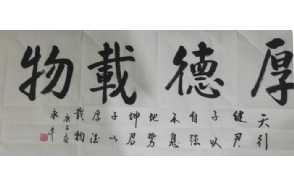 厚德載物
天行
健君
子以
自強
不息
地勢
坤君
子以
厚德
載物